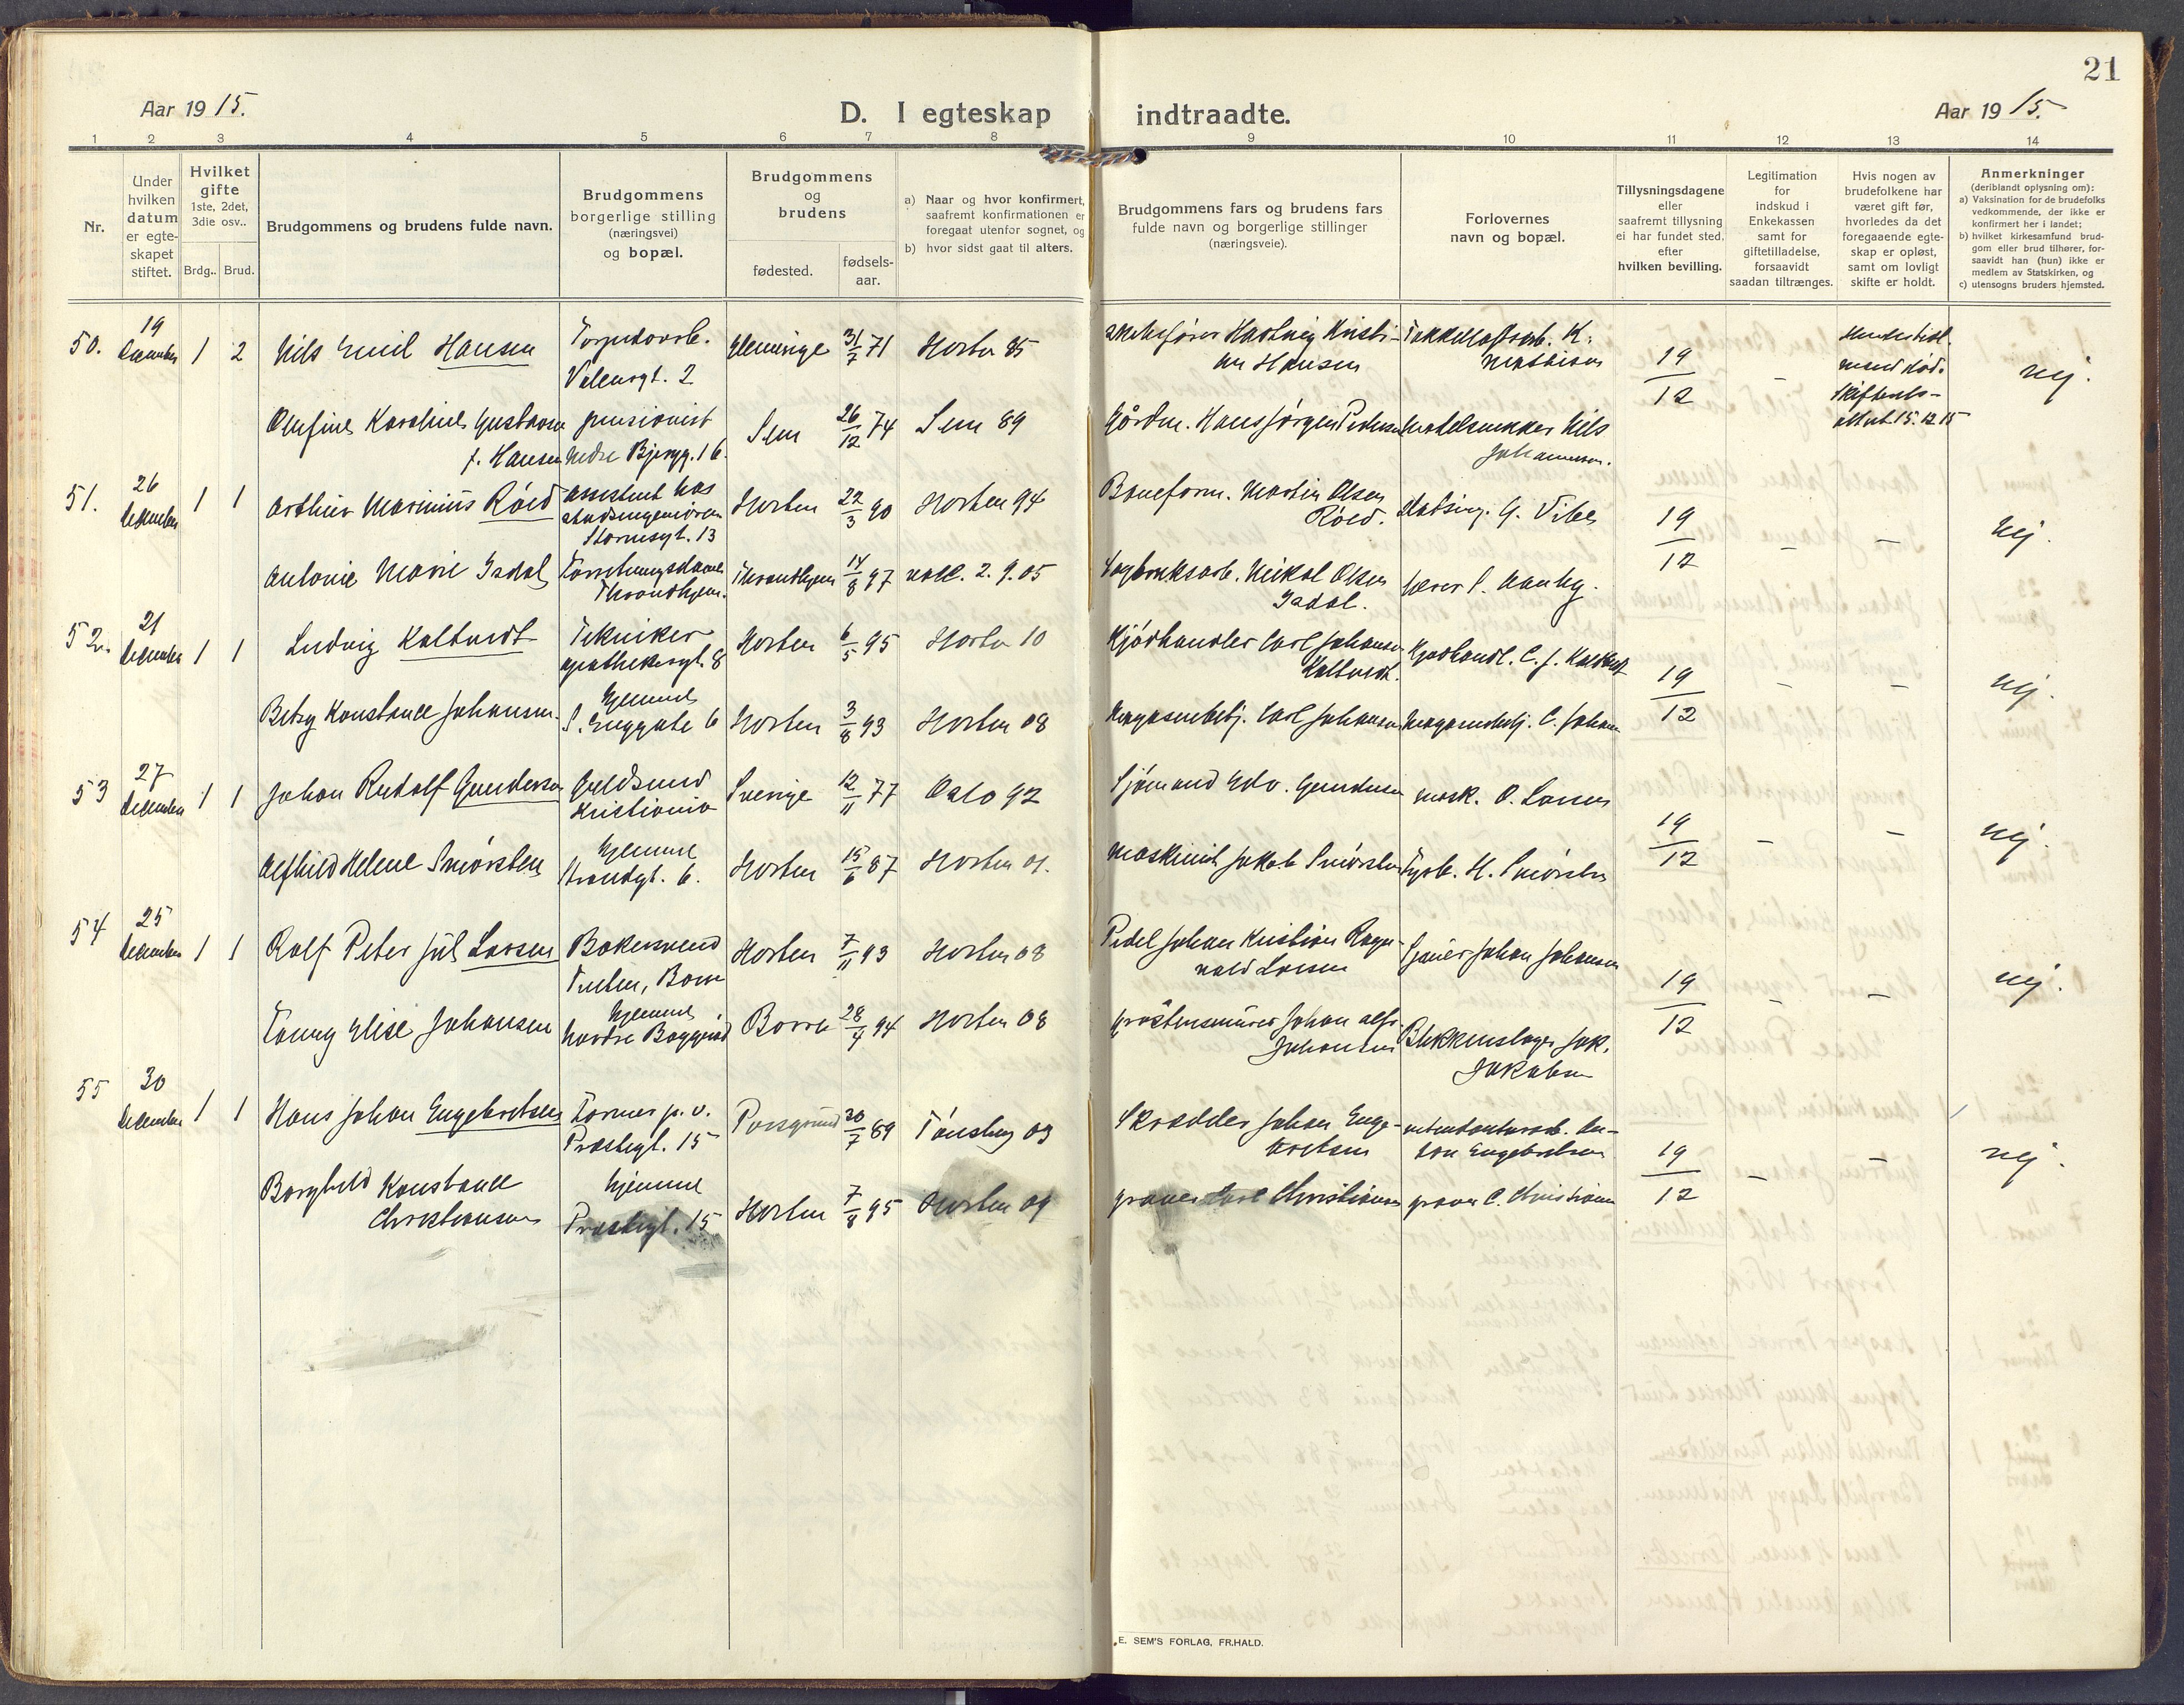 21
Aar 19 15.
D. I egteskap indtraadte.
Aar 19 15.
1 2 3 4 5 6 7 8 9 10 11 12 13 14
Nr.
Under
hvilken
datum
er egte-
skapet
stiftet.
Hvilket
gifte
1ste, 2det,
3die osv..
Brdg.. Brud.
Brudgommens og brudens fulde navn.
Brudgommens
borgerlige stilling
(næringsvei)
og bopæl.
Brudgommens
og
brudens
fødested.
fødsels-
aar.
a) Naar og hvor konfirmert,
saafremt konfirmationen er
foregaat utenfor sognet, og
b) hvor sidst gaat til alters.
Brudgommens fars og brudens fars
fulde navn og borgerlige stillinger
(næringsveie).
Forlovernes
navn og bopæl.
Tillysningsdagene
eller
saafremt tillysning
ei har fundet sted,
efter
hvilken bevilling.
Legitimation
for
indskud i
Enkekassen
samt for
giftetilladelse,
forsaavidt
saadan tiltrænges.
Hvis nogen av
brudefolkene har
været gift før,
hvorledes da det
foregaaende egte-
skap er opløst,
samt om lovligt
skifte er holdt.
Anmerkninger
(deriblandt oplysning om):
a) Vaksination for de brudefolks
vedkommende, der ikke er
konfirmert her i landet;
b) hvilket kirkesamfund brud-
gom eller brud tilhører, for-
saavidt han (hun) ikke er
medlem av Statskirken, og
c) utensogns bruders hjemsted.
50.
19
December
1 2
Nils Emil Hansen
Torpedoarb.
2
31/7 71
Horten 85
Hartvig Kristi-
an Hansen
K.
Mathisen
19/12
–
mand død.
attest 15.12.15
nej.
Olufine Karoline Gustava
f. Hansen
pensionist
Nedre Bjerggt. 16.
Sem
26/12 74
Sem 89
Gårdm. Hans Jørgen Pedersen
Nils
Johannesen.
51.
26
December
1 1
Arthur Marinius Røed
Assistent hos
stadsingeniøren
Stormsgt. 13
Horten
22/3 90
Horten 94
Baneform. Martin Olsen
Røed.
Stadsing. G. Vibe
19/12
– –
nej.
Antonie Marie Isdal
Forretningsdame
Throndhjem.
Throndhjem
14/8 97
vacc. 2.9.05
Sagbruksarb. Nikol Olsen
Isdal.
52.
21
December
1 1
Ludvig Kaltvedt
Tekniker
Apothekergt. 8
Horten
6/5 95
Horten 10
Kjødhandler Carl Johansen
Kaltvedt.
Kjødhandl. C. J. Kaltvedt
19/12
– –
nej.
Betzy Konstance Johansen
hjemme
S. Enggate 6
Horten
3/8 93
Horten 08
Magasinbetj. Carl Johansen
Magasinbetj. C. Johansen
53
27
December
1 1
Johan Rudolf Gundersen
Guldsmed
Kristiania
Sverige
12/11 77
Oslo 92
Sjømand Edv. Gundersen
mask. O. Larsen
19/12
– –
nej.
Alfhild Helene Smørsten
hjemme
Strandgt. 6.
Horten
15/6 87
Horten 01.
Maskinist Jakob Smørsten
H. Smørsten
54
25
December
1 1
Rolf Peter Jul Larsen
Bakersvend
Borre
Horten
7/11 93
Horten 08
Pedel Johan Kristian Ragn-
vald Larsen
Johan Johansen
19/12
– –
nej.
Fanny Elise Johansen
hjemme
Nordre
Borre
28/4 94
Horten 08
Johan Alfr.
Johansen
Blikkenslager Jak.
Jakobsen
55
30
December
1 1
Hans Johan Engebretsen
Former p. v.
Præstegt. 15
Porsgrund
30/7 89
Tønsberg 03
Skrædder Johan Enge-
bretsen
An-
ton Engebretsen
19/12
– –
nej.
Borghild Konstance
Christiansen
hjemme
Præstegt. 15
Horten
7/8 95
Horten 09
graver Carl Christiansen
graver C. Christiansen
E. SEM'S FORLAG, FR.HALD.